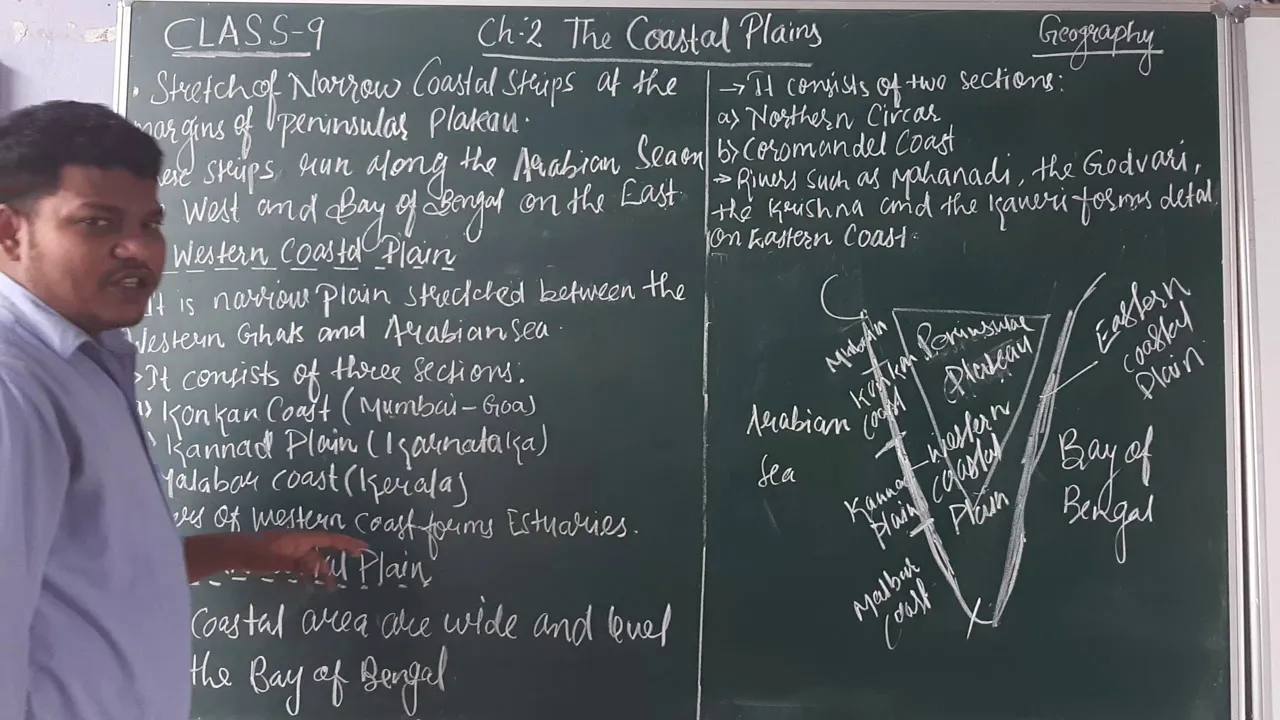 CLASS-9
Ch:2 The Coastal Plains
Geography
• Stretch of Narrow Coastal Strips at the
margins of peninsular plateau.
strips run along the Arabian Sea on
West and Bay of Bengal on the East
Western Coastal Plain
It is narrow plain stretched between the
Western Ghats and Arabian sea.
It consists of three sections:
a) Konkan Coast (Mumbai-Goa)
Kannad Plain (Karnataka)
Malabar coast (Kerala)
of western coast forms Estuaries.
Plain
Coastal area are wide and level
the Bay of Bengal
→ It consists of two sections:
a) Northern Circar
b) Coromandel Coast
→ Rivers such as Mahanadi, the Godvari,
the Krishna and the Kaveri forms
on Eastern Coast.
Peninsular
Plateau
Mumbai
Konkan
Coast
Western
Coastal
Plain
Eastern
Coastal
Plain
Arabian
Sea
Bay of
Bengal
Kannad
Plain
Malbar
Coast